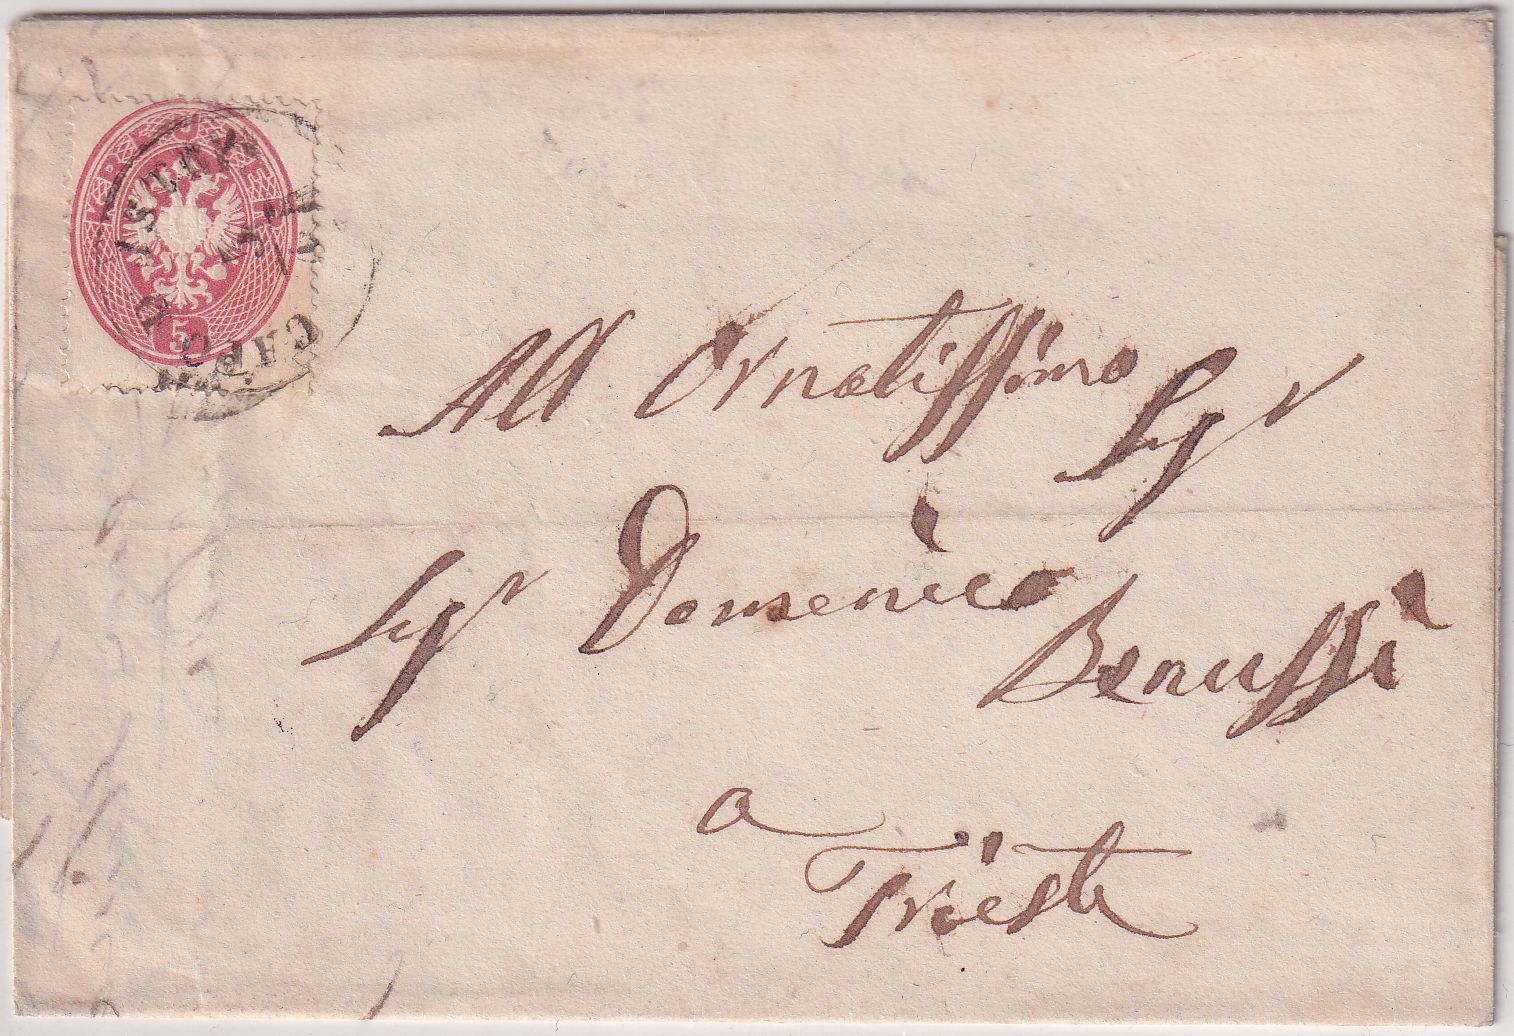 CAPO D'ISTRIA
5
All Ornatissimo Sigr
Sigr Domenico
Benussi
a
Trieste